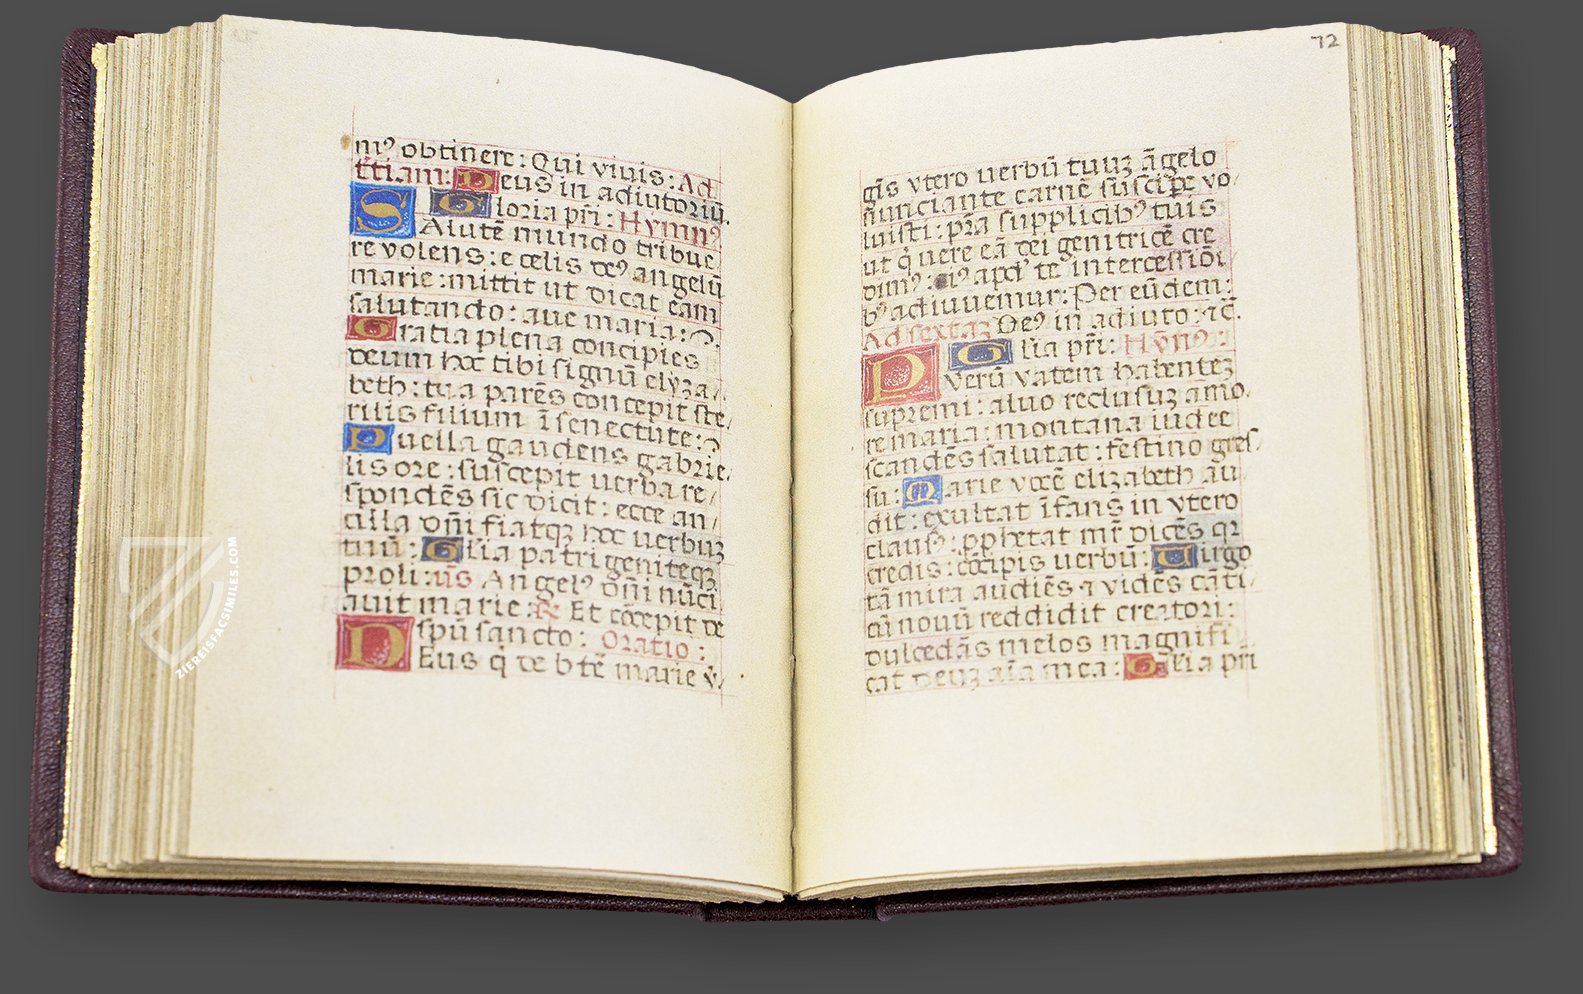 mꝰ obtinere: Qui viuis: Ad
t̃tiam: Deus in adiutoriũ.
Gloria pr̃i: Hymnꝰ
SAlutẽ mundo tribue
re volens: e celis deꝰ angelũ
marie: mittit ut dicat eam
salutando: aue maria:
Gratia plena concipies
deum hoc tibi signũ elyza/
beth: tua parẽs concepit ste/
rilis filium ĩ senectute:
Puella gaudens gabrie/
lis ore: suscepit uerba re/
spondẽs sic dicit: ecce an/
cilla dñi fiatqꝫ hoc uerbuꝫ
tuũ: Gl̃ia patri geniteqꝫ
proli: us̃ Angelꝰ dñi nũci
auit marie: ℟ Et cõcepit de
spũ sancto: Oratio:
DEus q̇ de btẽ marie v̇/
72
gĩs vtero uerbũ tuuꝫ ãgelo
ñunciante carnẽ suscipe vo/
luisti: pr̃a supplicibꝰ tuis
ut q̇ uere eã dei genitricẽ cre
dimꝰ: eiꝰ apd' te intercessiõi
bꝰ adiuuemur: Per eũdem:
Ad sextaꝫ Deꝰ in adiuto: ⁊c̃.
Gl̃ia pr̃i: Hỹnꝰ:
PVerũ vatem habenteꝫ
supremi: aluo reclusuꝫ amo
re maria: montana iudee
scandẽs salutat: festino gres/
su: Marie vocẽ elizabeth au
dit: exultat ĩfans in vtero
clausꝰ: ꝓphetat mr̃ dicẽs qr
credis: cõcipis uerbũ: Uirgo
tã mira audiẽs ⁊ vidẽs cãti/
cũ nouũ reddidit creatori:
dulcedĩs melos magnifi
cat deuꝫ aĩa mea: Gl̃ia pr̃i
ZIEREISFACSIMILES.COM